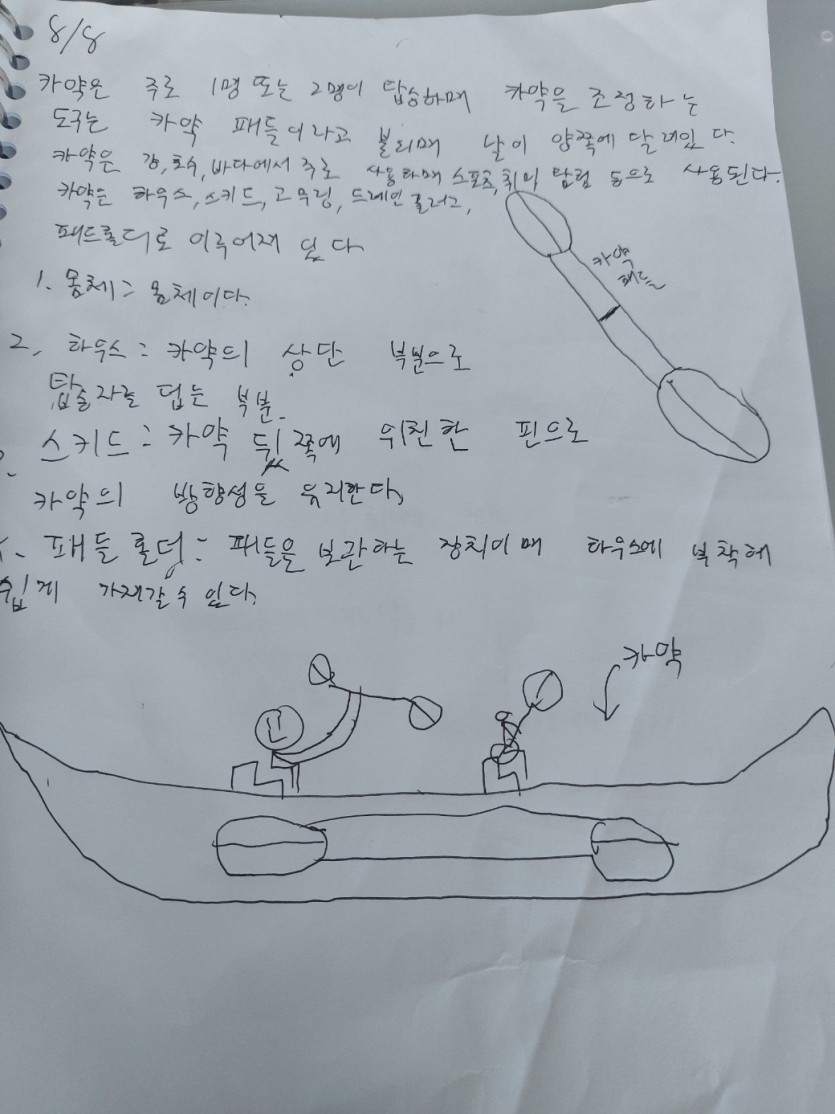 8/8
카약은 주로 1명 또는 2명이 탑승하매 카약을 조정하는
도구는 카약 패들이라고 불리매 날이 양쪽에 달려있다.
카약은 강, 호수, 바다에서 주로 사용하매 스포츠, 취미 탐험 등으로 사용된다.
카약은 하우스, 스키드, 고무링, 드레인 플러그,
패드홀디로 이루어재 있다
카약
패들
1. 몸체: 몸체이다.
2. 하우스: 카약의 상단 부분으로
탑승자를 덥는 부분.
스키드: 카약 뒤쪽에 위친한 핀으로
카약의 방향성을 유지한다,
패들 홀더: 패들을 보관하는 장치이매 하우스에 부착해
쉽게 가재갈 수 있다.
카약